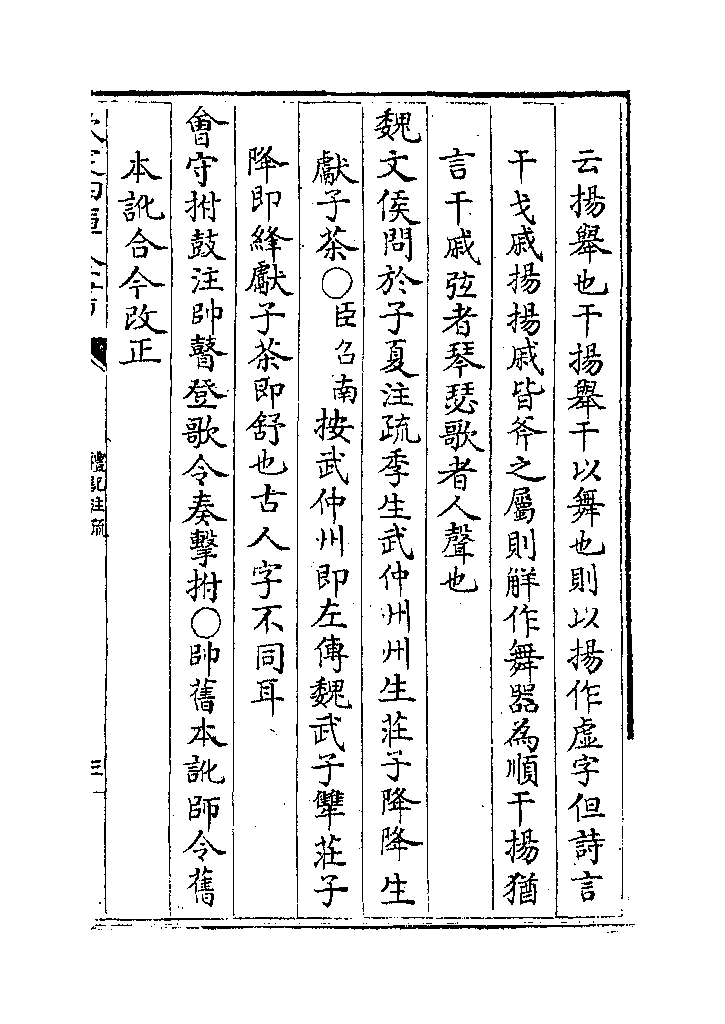 云揚舉也干揚舉干以舞也則以揚作虛字但詩言
干戈戚揚揚戚皆斧之屬則觧作舞器為順干揚猶
言干戚弦者琴瑟歌者人聲也
魏文侯問於子夏注疏季生武仲州州生莊子降降生
獻子荼○臣召南按武仲州即左傳魏武子犨莊子
降即絳獻子荼即舒也古人字不同耳
㑹守拊鼓注帥瞽登歌令奏擊拊○帥舊本訛師令舊
本訛合今改正
禮記注疏
三